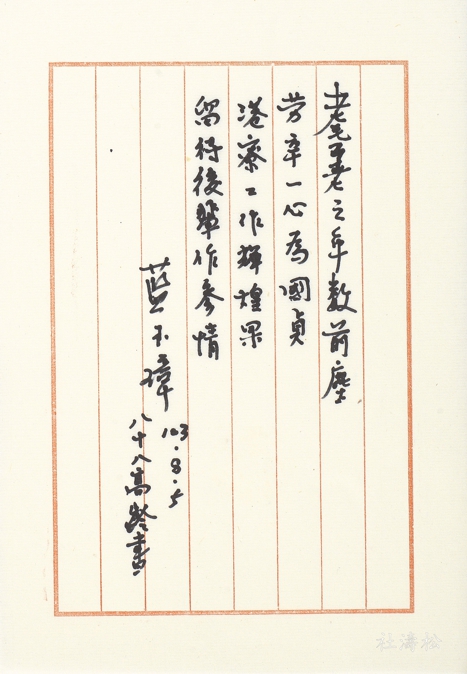 耄耋之年數前塵
劳辛一心為國貞
港寮工作輝煌果
留待後輩作參情
藍玉璋
103.8.5
八十八高齡書
松濤社